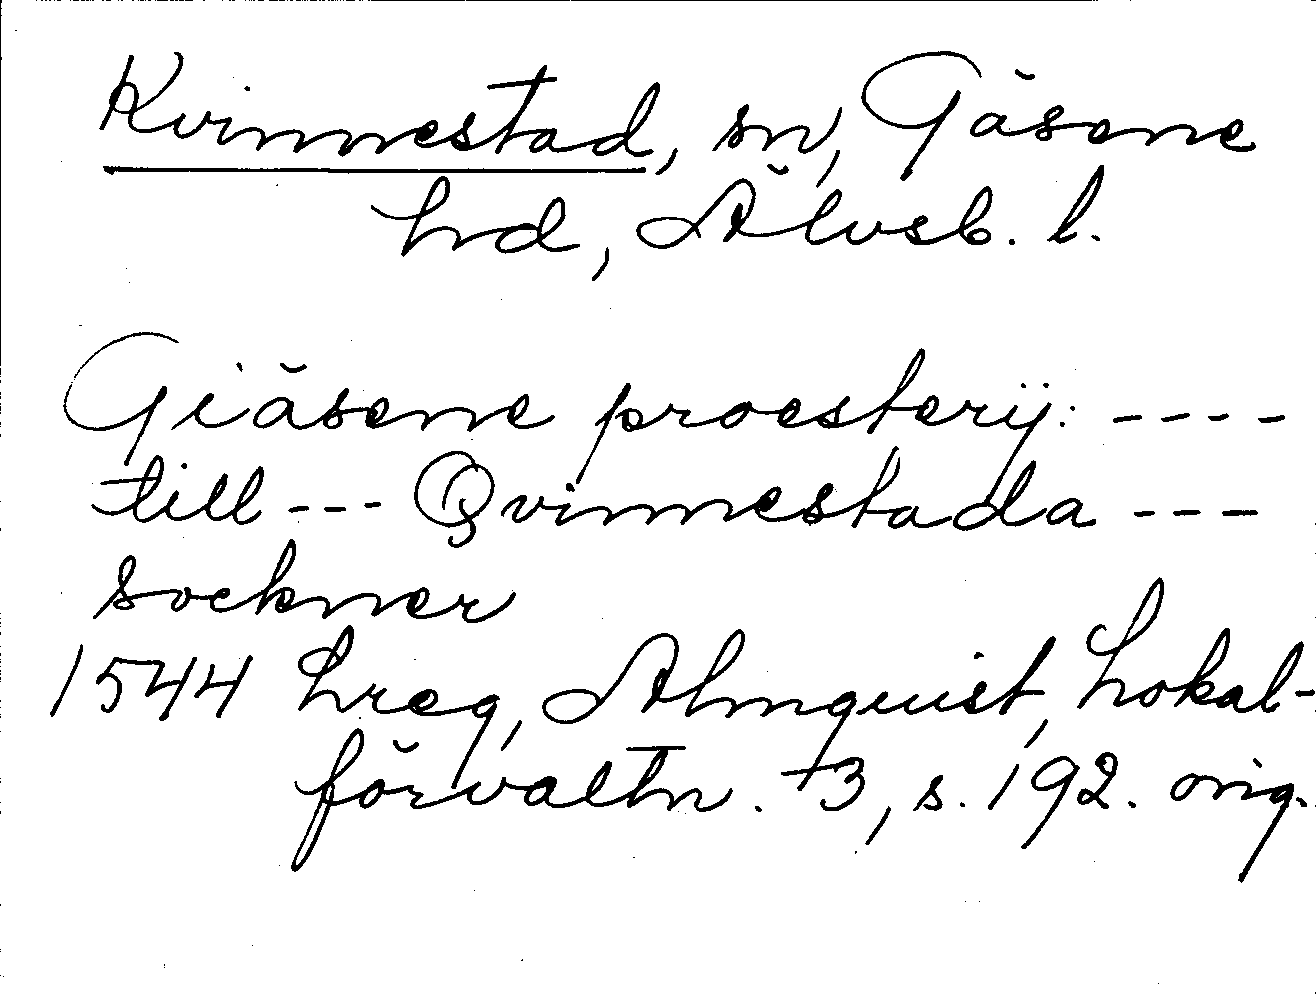 Kvinnestad, sn, Gäsene
hd, Älvsb. l.
Giäsene proesterij: ----
till --- Qvinnestada ---
sockner
1544 hreg, Almquist, Lokal-
förvaltn. †3, s. 192. orig.